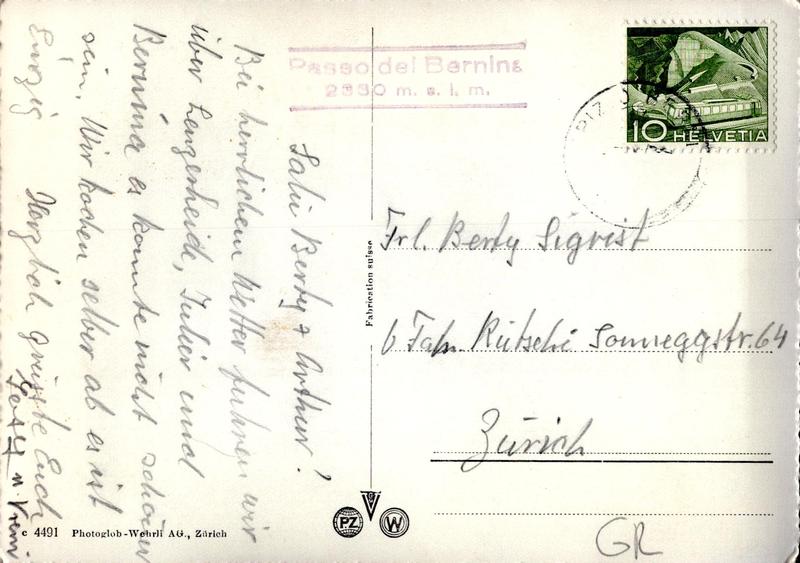 Passo del Bernina
2330 m. s. l. m.
10 HELVETIA
PIZ
Salü Berty & Arthur!
Bei herrlichem Wetter fuhren wir
über Lenzerheide, Julier und
Bernina es könnte nicht schöner
sein. Wir kochen selber ab es ist
Einzig Herzlich grüsste Euch
Fabrication suisse
Frl. Berty Sigrist
Fam. Rütschi Sonneggstr. 64
Zürich
PZ W
c 4491 Photoglob-Wehrli AG., Zürich
GR